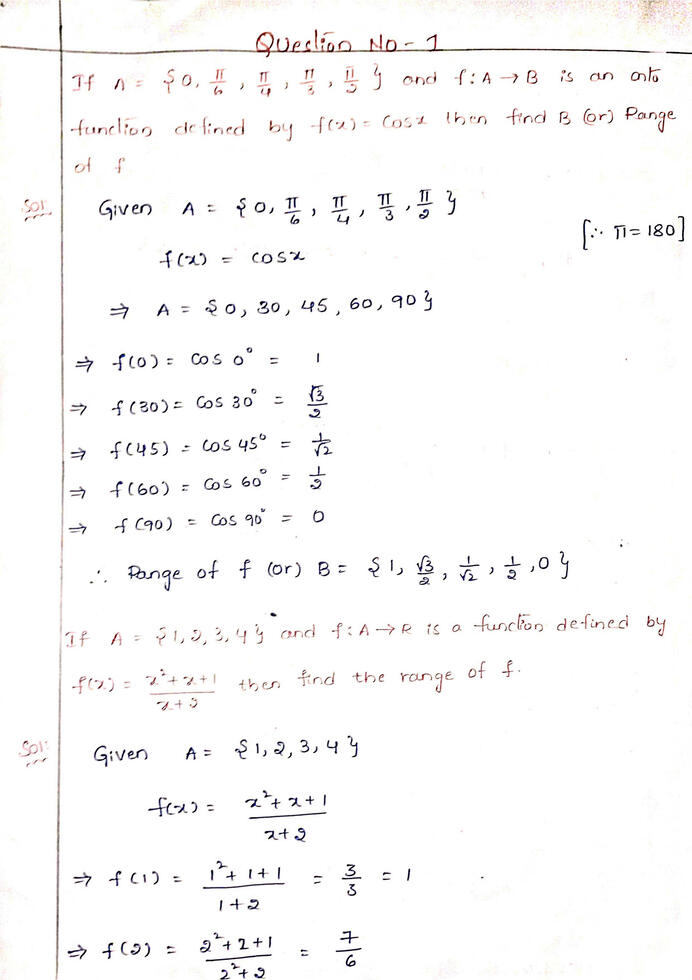 Question No - 1
If A = {0, π/6, π/4, π/3, π/2} and f: A → B is an onto
function defined by f(x) = cosx then find B (or) Range
of f
Sol: Given A = {0, π/6, π/4, π/3, π/2}
[∵ π = 180]
f(x) = cosx
⇒ A = {0, 30, 45, 60, 90}
⇒ f(0) = cos 0° = 1
⇒ f(30) = cos 30° = √3/2
⇒ f(45) = cos 45° = 1/√2
⇒ f(60) = cos 60° = 1/2
⇒ f(90) = cos 90° = 0
∴ Range of f (or) B = {1, √3/2, 1/√2, 1/2, 0}
If A = {1, 2, 3, 4} and f: A → R is a function defined by
f(x) = x²+x+1/x+2 then find the range of f.
Sol: Given A = {1, 2, 3, 4}
f(x) = x²+x+1/x+2
⇒ f(1) = 1²+1+1/1+2 = 3/3 = 1
⇒ f(2) = 2²+2+1/2²+2 = 7/6